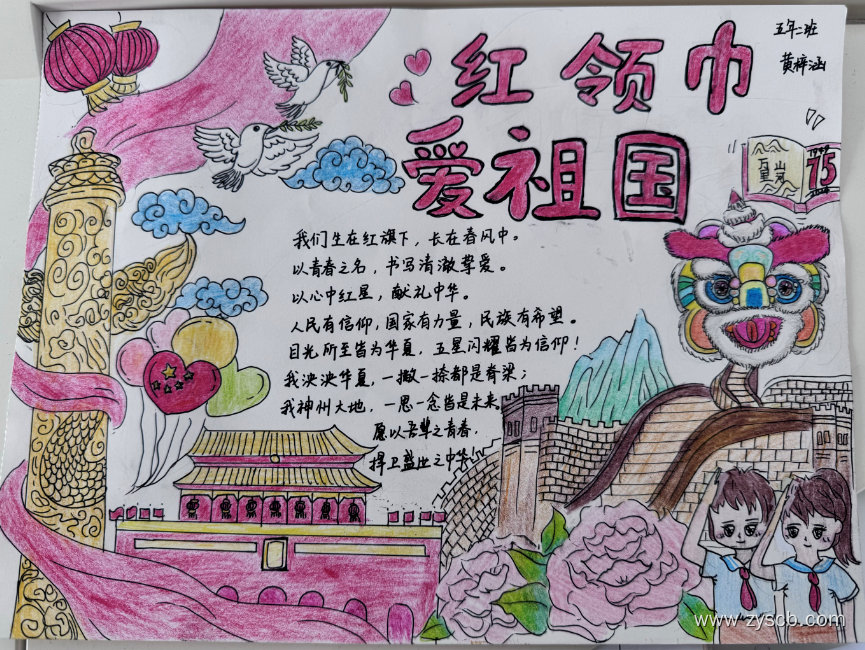 红领巾
爱祖国
五年二班
黄梓涵
万里
山河
1949
75
我们生在红旗下，长在春风中。
以青春之名，书写清澈挚爱。
以心中红星，献礼中华。
人民有信仰，国家有力量，民族有希望。
目光所至皆为华夏，五星闪耀皆为信仰！
我泱泱华夏，一撇一捺都是脊梁；
我神州大地，一思一念皆是未来。
愿以吾辈之青春，
捍卫盛世之中华！
www.zyscb.com